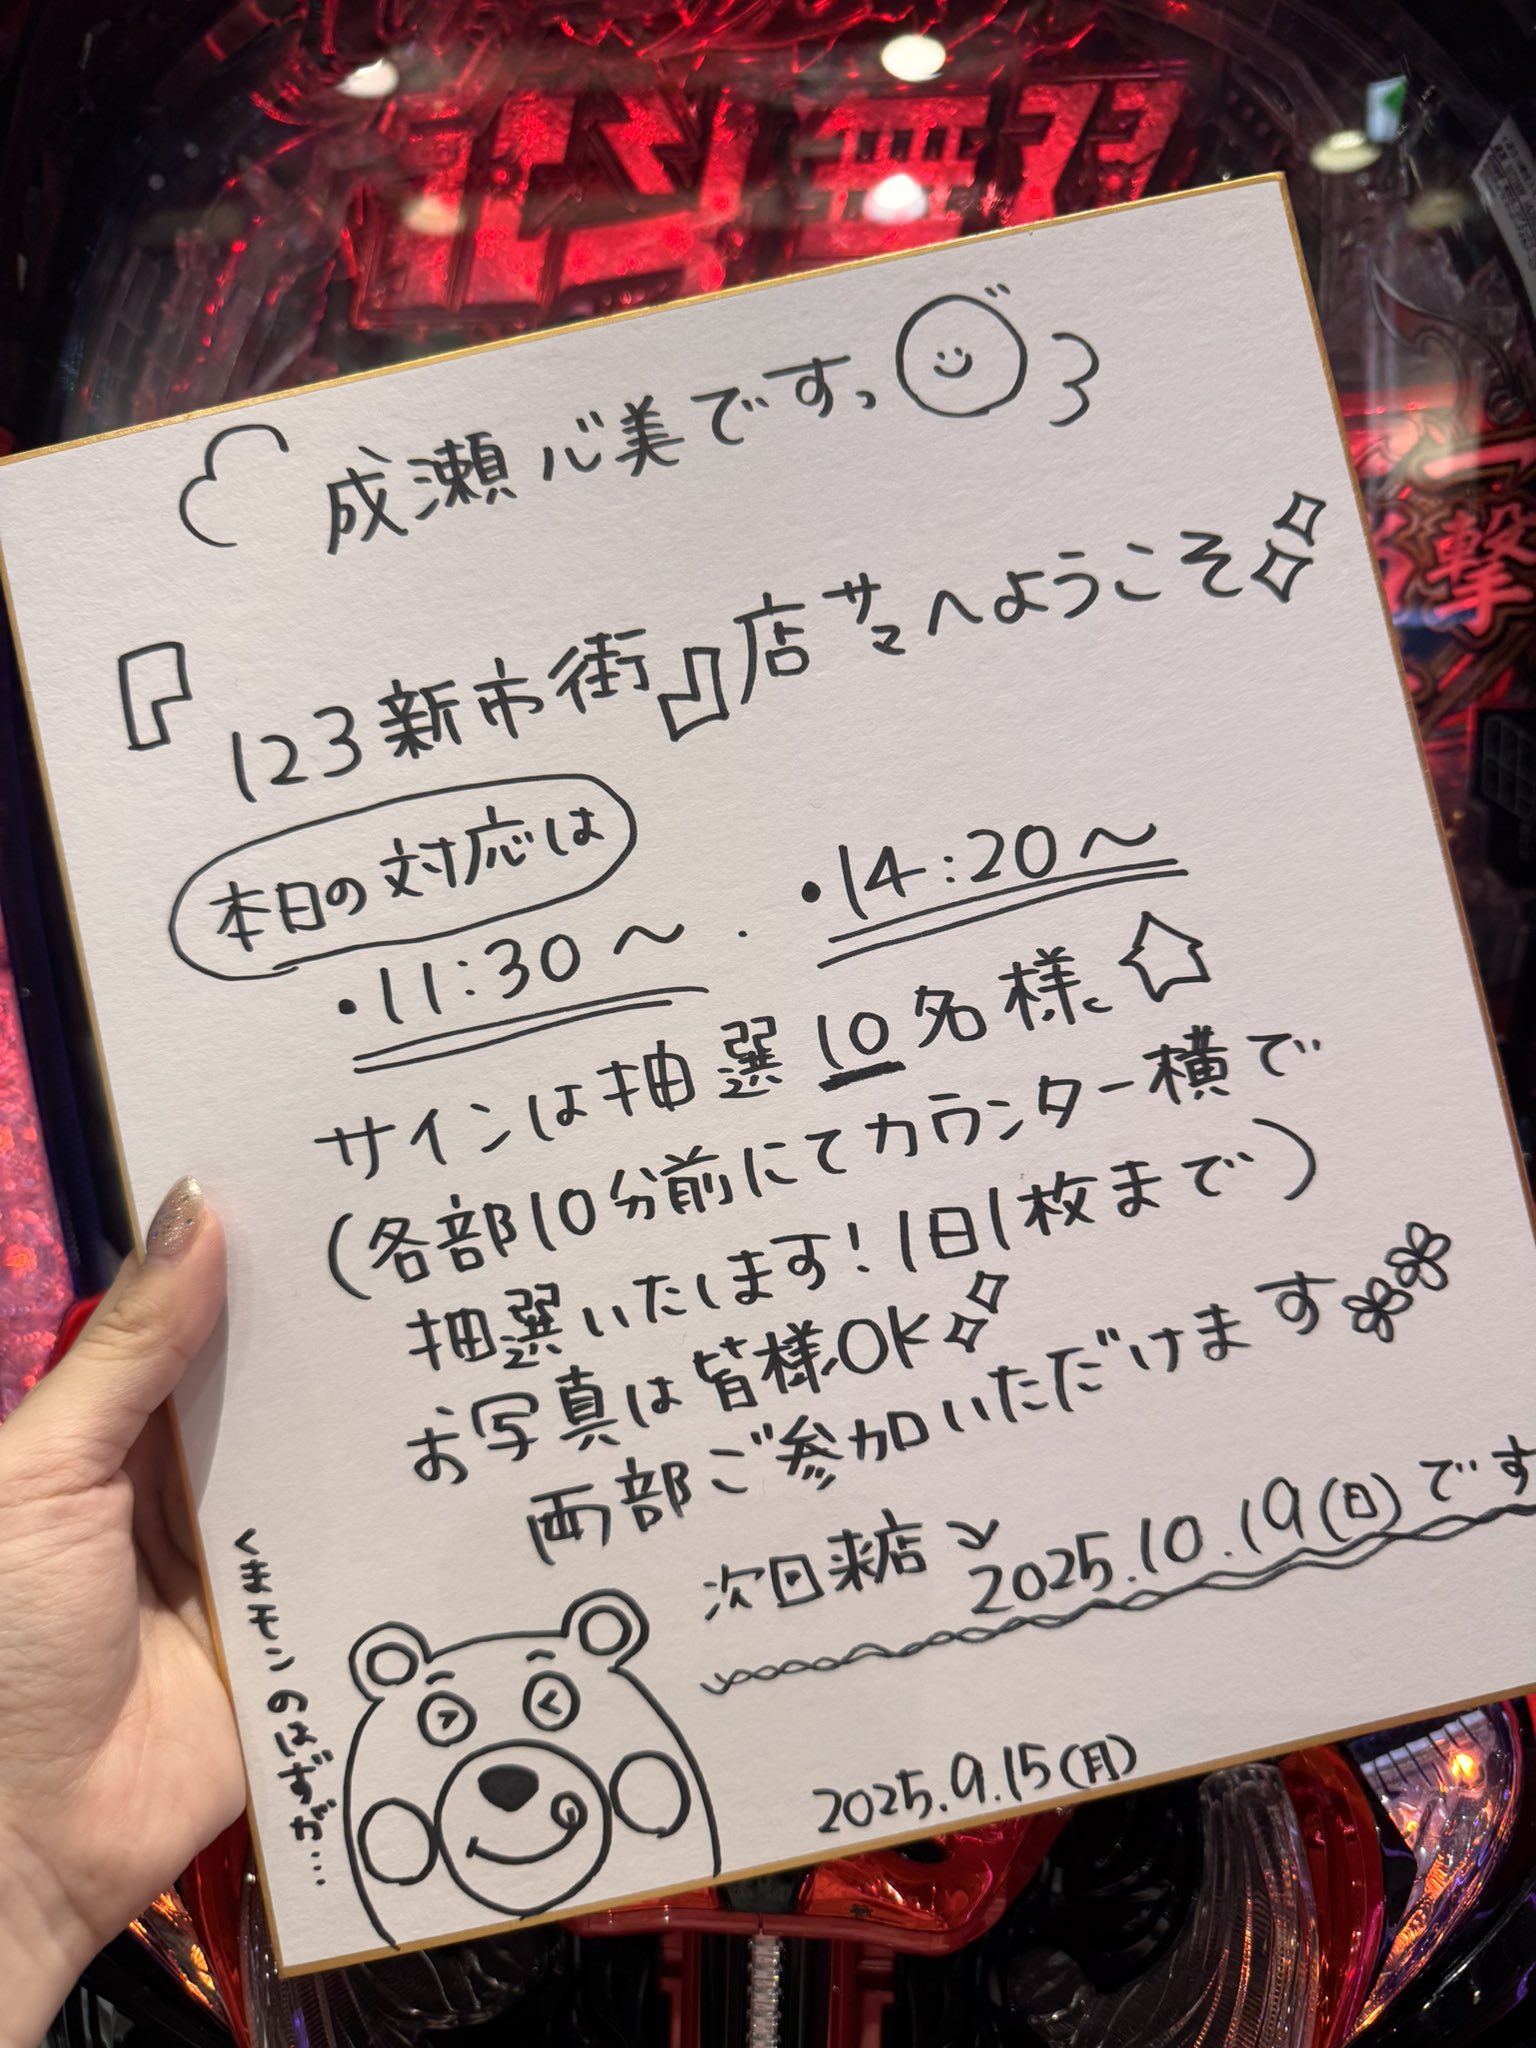 成瀬心美ですっ
『123新市街』店サマへようこそ
本日の対応は
・11:30〜 ・14:20〜
サインは抽選10名様
(各部10分前にてカウンター横で
抽選いたします!1日1枚まで)
お写真は皆様OK
両部ご参加いただけます
次回来店
2025.10.19(日)です
くまモンのはずが…
2025.9.15(月)
一撃